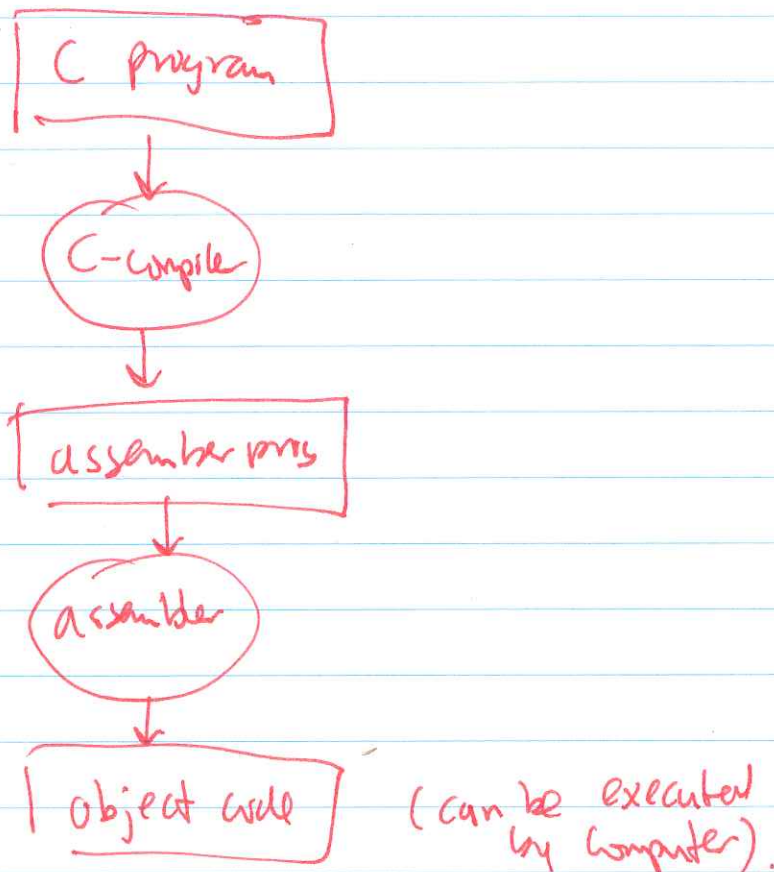 C program
C-compiler
assember prog
assembler
object code
(can be executed
by computer).